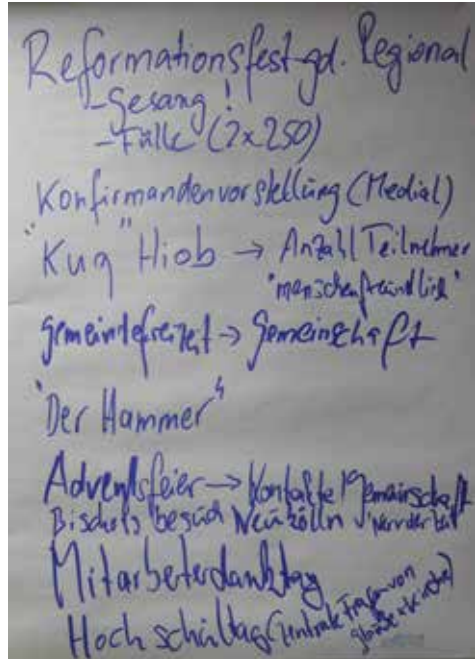 Reformationsfest gd. Regional
- Gesang!
- Fülle (2x250)
Konfirmandenvorstellung (Medial)
"Kug" Hiob → Anzahl Teilnehmer
"menschenfreundlich"
Gemeindefreizeit → Gemeinschaft
"Der Hammer"
Adventsfeier → Kontakte/Gemeinschaft
Bischofsbesuch Neukölln
Mitarbeiterdanktag
Hochschultag (zentrale Fragen von
Glaube + Kirche)